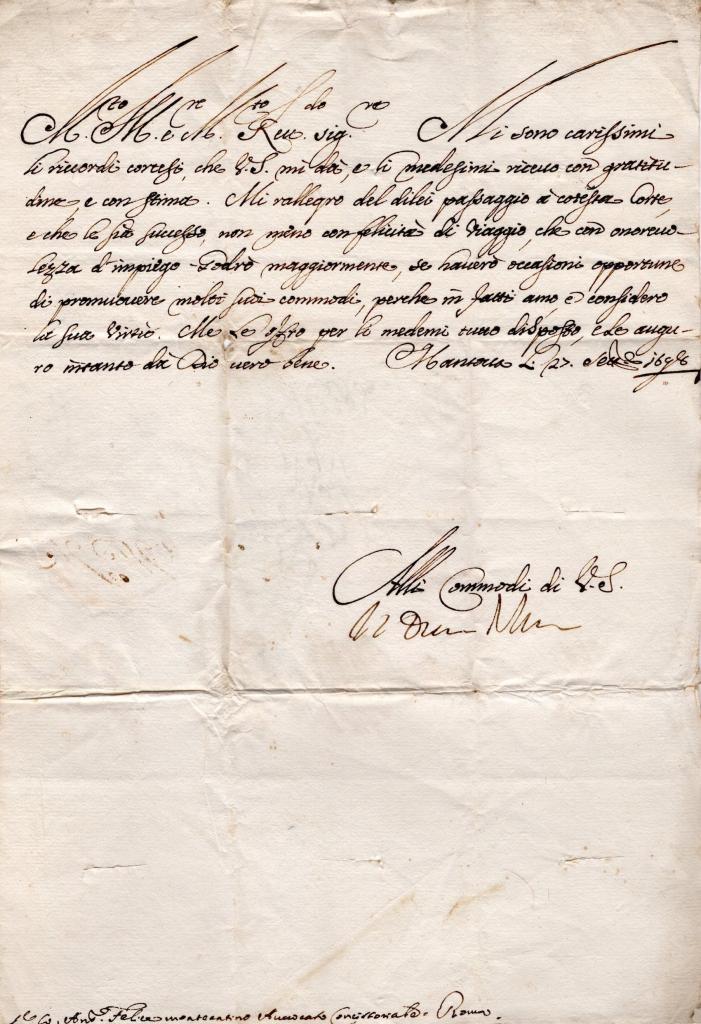 M.to M. re e M.to Rev.do sig.re Mi sono carissimi
li riccordi cortesi, che V.S. mi dà, e li medesimi riceuo con gratitu-
dine e con stima. Mi rallegro del dilei passaggio à cotesta Corte,
e che le sia successo, non meno con felicità di Viaggio, che con onoreuo-
lezza d'impiego. Godrò maggiormente, se hauerò occasioni opportune
di promuouere molti suoi commodi, perche in fatti amo e considero
la sua Virtù. Me Le offro per li medemi tutto disposto, e Le augu-
ro intanto dà Dio uero bene. Mantoua Li 27. Sett.e 1698
Alli Commodi di V.S.
Il Duca
Felice montecatino Auuocato Concistoriale. Roma.